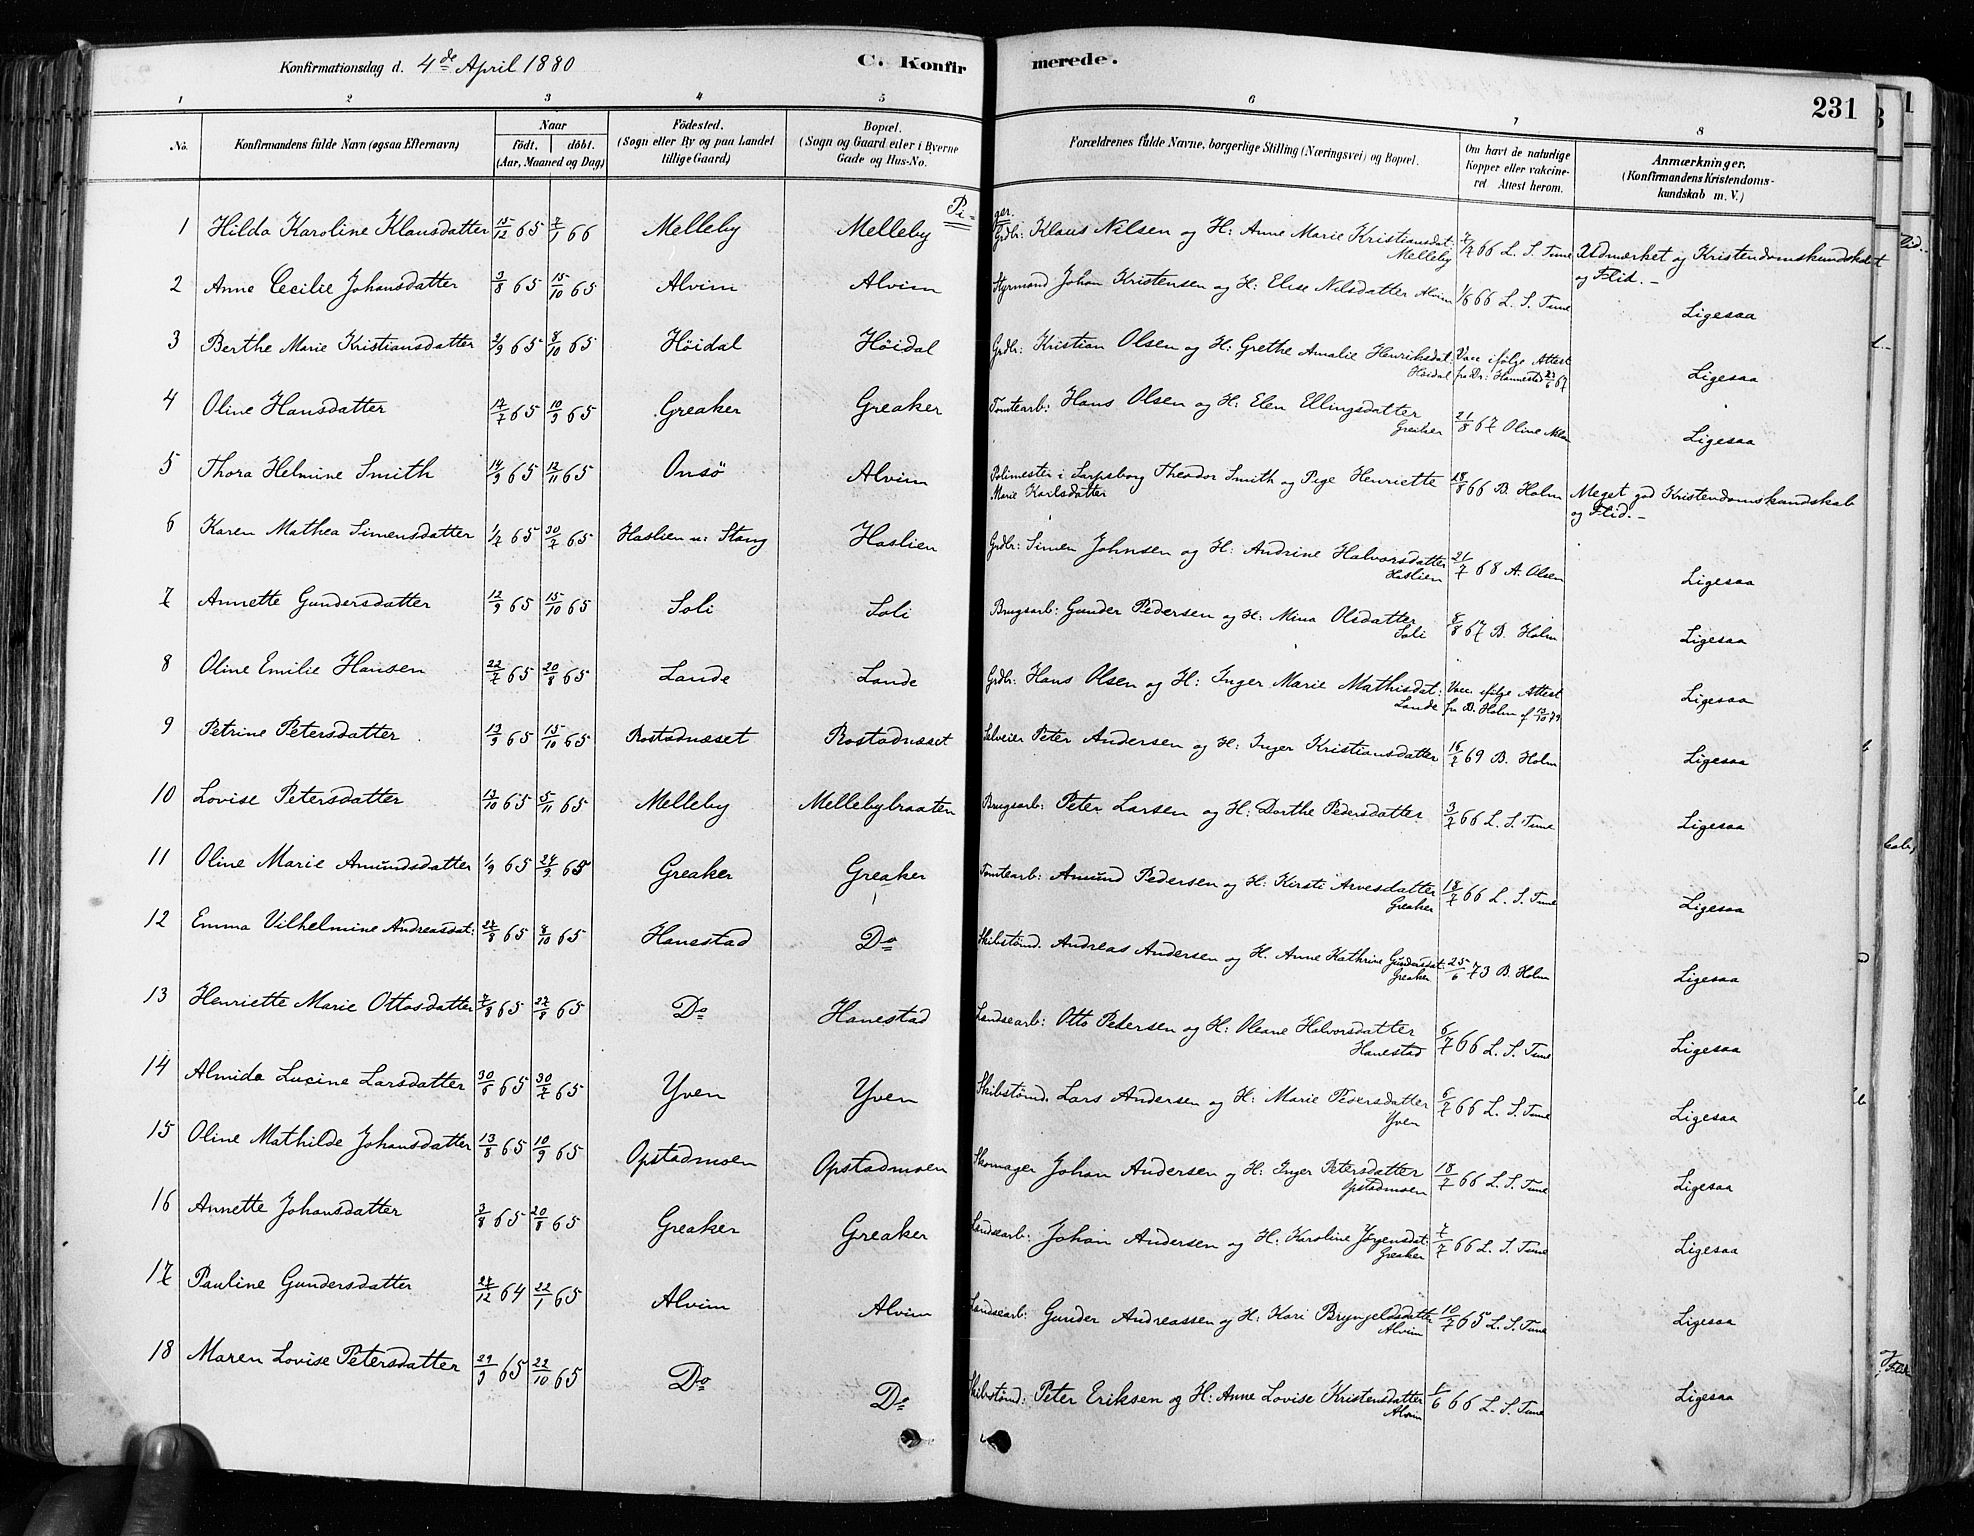 Konfirmationsdag d. 4de April 1880 C. Konfirmerede. 231
1 2 3 4 5 6 7 8
No. Konfirmandens fulde Navn (ogsaa Efternavn) Naar født. døbt. (Aar, Maaned og Dag) Fødested. (Sogn eller By og paa Landet tillige Gaard) Bopæl. (Sogn og Gaard eller i Byerne Gade og Hus-No. Forældrenes fulde Navne, borgerlige Stilling (Næringsvei) og Bopæl. Om havt de naturlige Kopper eller vakcineret Attest herom. Anmærkninger, (Konfirmandens Kristendomskundskab m. V.)
Piger.
1 Hilda Karoline Klausdatter 15/12 65 7/1 66 Melleby Melleby Grdbr: Klaus Nilsen og H: Anne Marie Kristiansdat: Melleby 7/7 66 L. S. Tune Udmærket og Kristendomskundskab og Flid.-
2 Anne Cecilie Johansdatter 3/8 65 15/10 65 Alvim Alvim Styrmand Johan Kristensen og H: Elise Nilsdatter Alvim 1/6 66 L. S. Tune Ligesaa
3 Berthe Marie Kristiansdatter 2/9 65 8/10 65 Höidal Höidal Grdbr: Kristian Olsen og H: Grethe Amalie Henriksdat: Höidal Vacc ifølge Attest fra Dr: Hannestad 23/6 67 Ligesaa
4 Oline Hansdatter 17/7 65 10/9 65 Greaker Greaker Tomtearb: Hans Olsen og H: Elen Ellingsdatter Greaker 21/8 67 Oline Ligesaa
5 Thora Helmine Smith 14/9 65 12/11 65 Onsö Alvim Polimester i Sarpsborg Theodor Smith og Pige Henriette Marie Karlsdatter 18/8 66 B. Holm Meget god Kristendomskundskab og Flid.-
6 Karen Mathea Simensdatter 1/7 65 30/7 65 Haslien u: Stang Haslien Grdbr: Simen Johnsen og H: Andrine Halvorsdatter Haslien 21/7 68 A. Olsen Ligesaa
7 Annette Gundersdatter 12/9 65 15/10 65 Soli Soli Brugsarb: Gunder Pedersen og H: Mina Olsdatter Soli 8/8 67 B. Holm Ligesaa
8 Oline Emilie Hansen 22/7 65 20/8 65 Lande Lande Grdbr: Hans Olsen og H: Inger Marie Mathisdat: Lande Vacc. ifølge Attest fra B. Holm af 13/10 79 Ligesaa
9 Petrine Petersdatter 13/9 65 15/10 65 Rostadnæset Rostadnæset Selveier Peter Andersen og H: Inger Kristiansdatter 16/7 69 B. Holm Ligesaa
10 Lovise Petersdatter 13/10 65 5/11 65 Melleby Mellebybraaten Brugsarb: Peter Larsen og H: Dorthe Pedersdatter 3/7 66 L. S. Tune Ligesaa
11 Oline Marie Amundsdatter 1/9 65 24/9 65 Greaker Greaker Tomtearb: Amund Pedersen og H: Kirsti Arvesdatter Greaker 18/7 66 L. S. Tune Ligesaa
12 Emma Vilhelmine Andreasdat: 27/8 65 8/10 65 Hanestad Do Skibstømd. Andreas Andersen og H. Anne Kathrine Gundersdat: Greaker 25/6 73 B. Holm Ligesaa
13 Henriette Marie Ottosdatter 7/8 65 27/8 65 Do Hanestad Landsearb: Otto Pedersen og H: Oleane Halvorsdatter Hanestad 6/7 66 L. S. Tune Ligesaa
14 Almida Lucine Larsdatter 30/6 65 30/7 65 Yven Yven Skibstømd. Lars Andersen og H: Marie Pedersdatter Yven 6/7 66 L. S. Tune Ligesaa
15 Oline Mathilde Johansdatter 13/8 65 10/9 65 Opstadmoen Opstadmoen Skomager Johan Andersen og H: Inger Petersdatter Opstadmoen 18/7 66 L. S. Tune Ligesaa
16 Annette Johansdatter 3/8 65 20/8 65 Greaker Greaker Landsearb: Johan Andersen og H: Karoline Jörgensdat: Greaker 7/7 66 L. S. Tune Ligesaa
17 Pauline Gundersdatter 27/12 64 22/1 65 Alvim Alvim Landsearb: Gunder Andreassen og H: Kari Bryngeldsdatter Alvim 10/7 65 L. S. Tune Ligesaa
18 Maren Lovise Petersdatter 29/9 65 22/10 65 Do Do Skibstømd: Peter Eriksen og H: Anne Lovise Kristensdatter Alvim 1/6 66 L. S. Tune Ligesaa